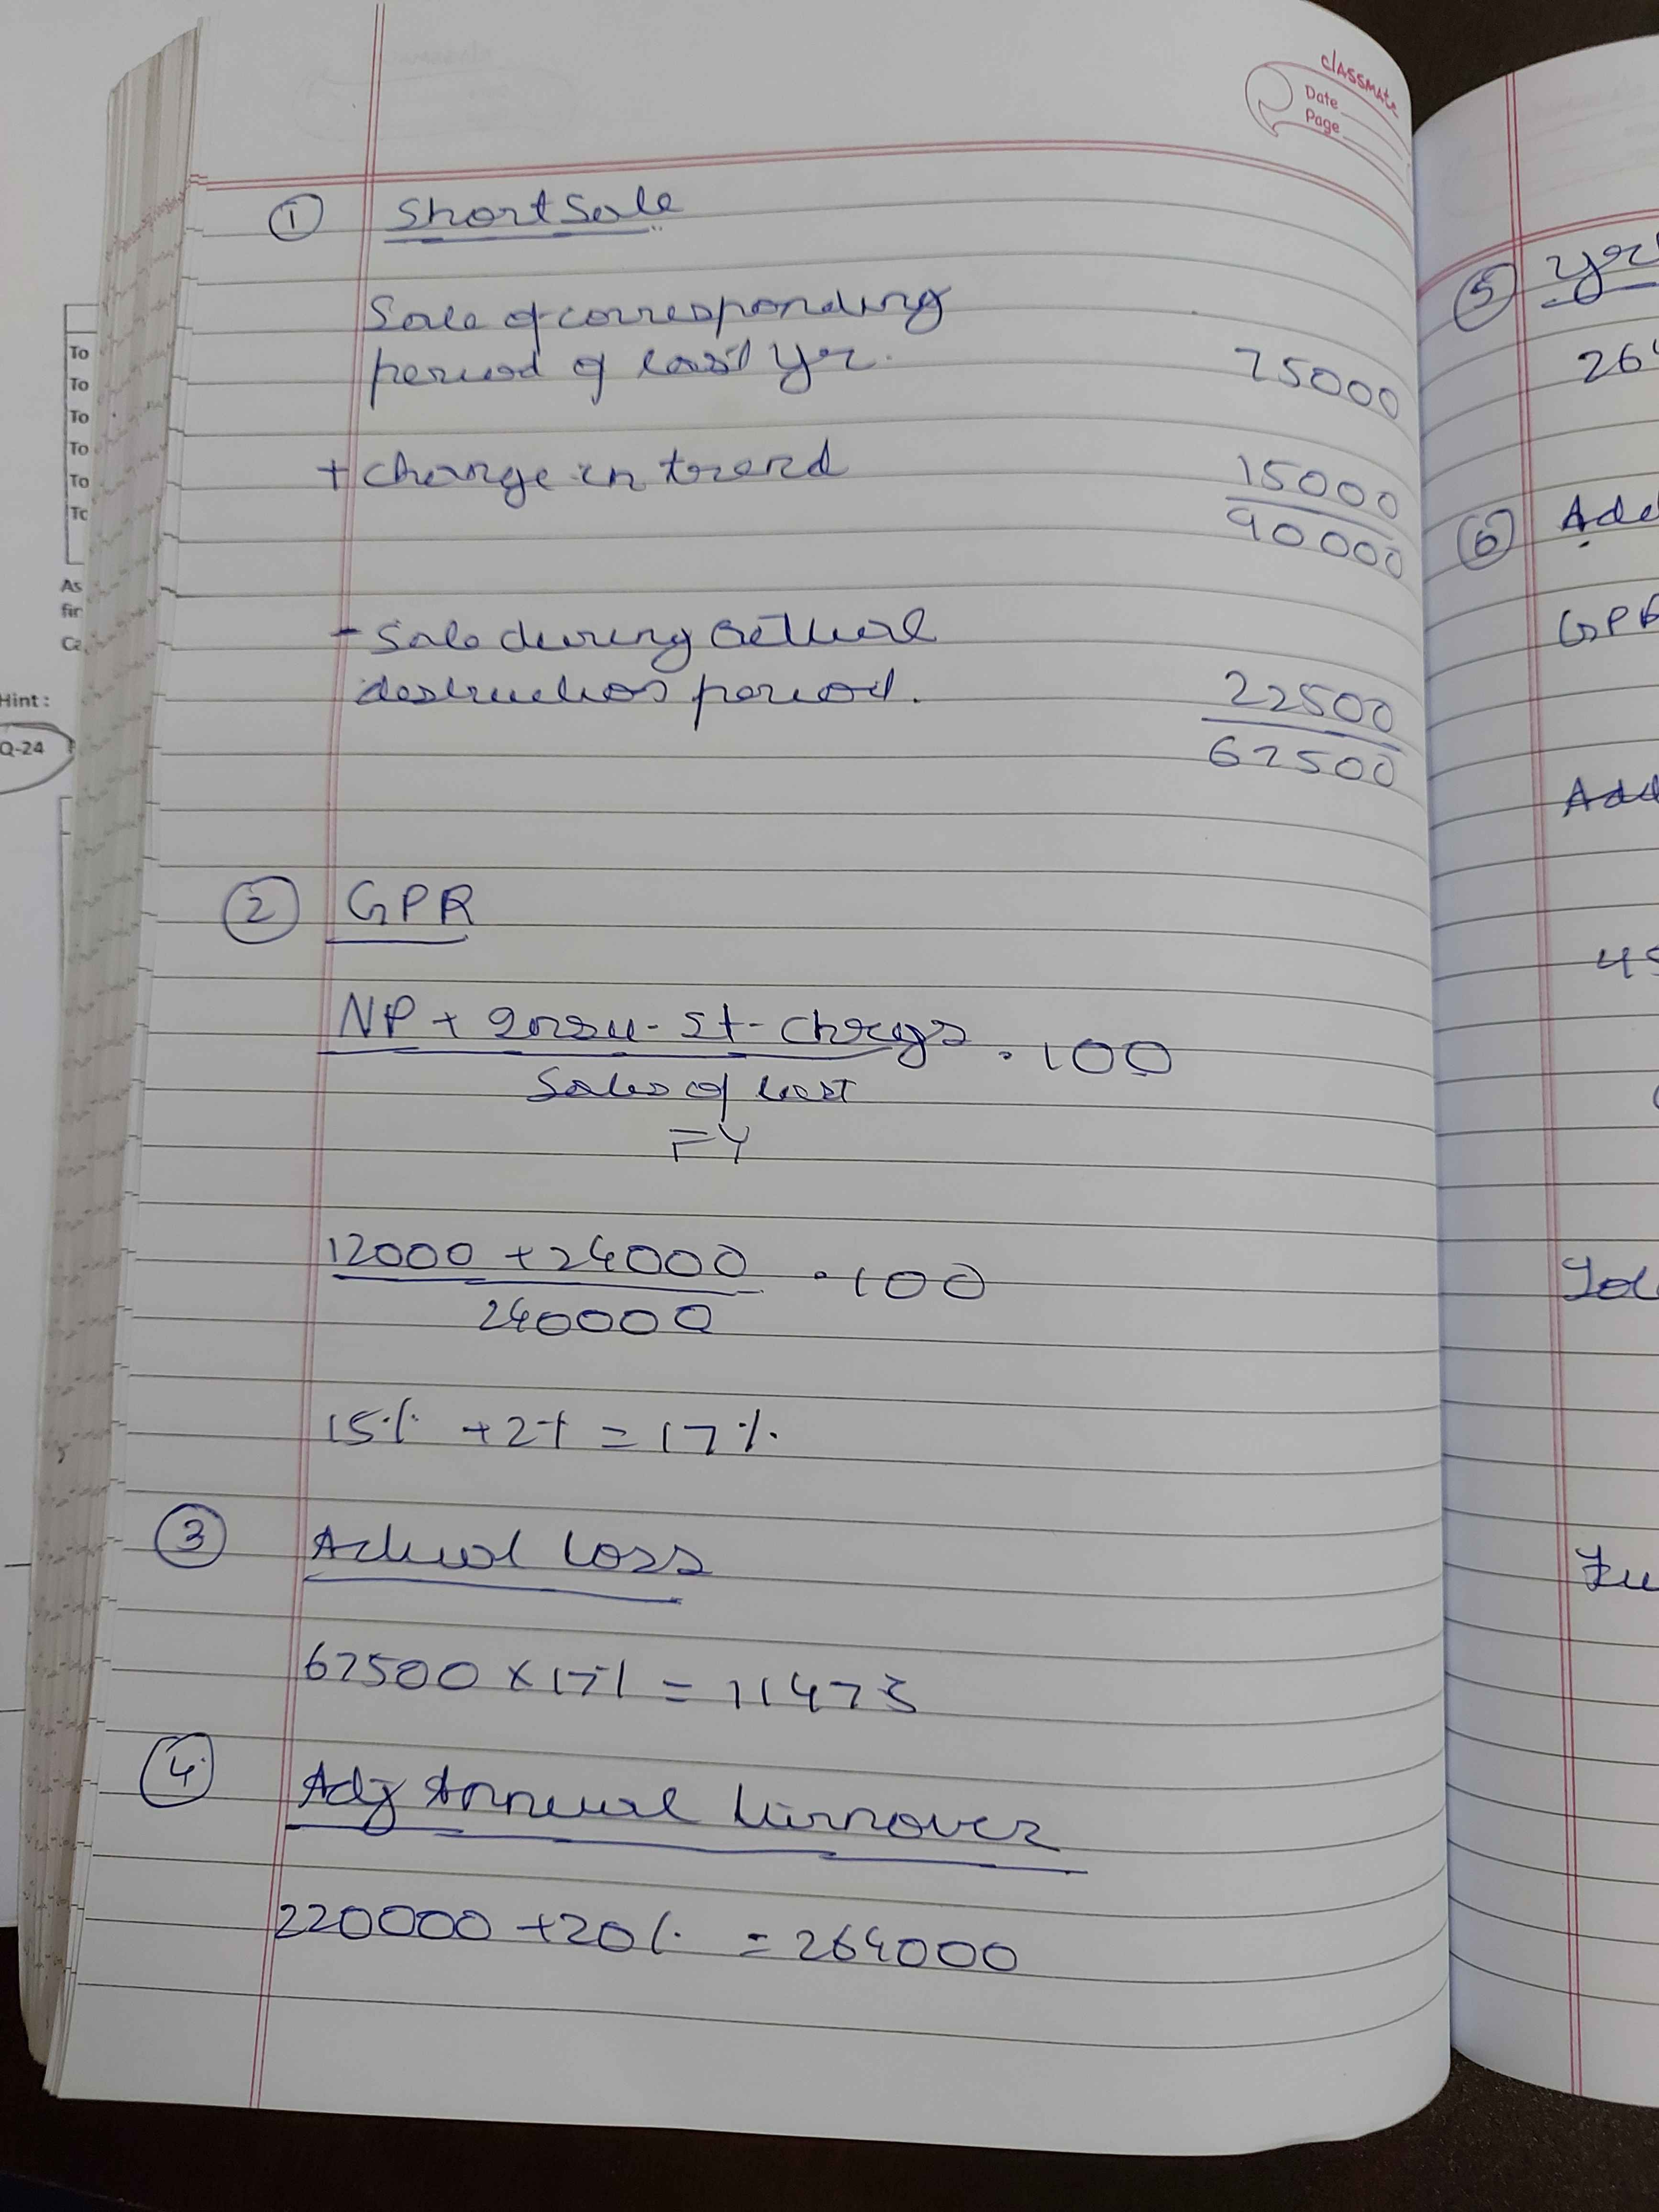 classmate
Date
Page
① Short Sale
Sale of corresponding
period of last yr. 75000
+ change in trend 15000
90000
- Sale during actual
destruction period. 22500
67500
② GPR
NP + Insu. St. Chrgs . 100
Sales of last
FY
12000 + 24000 . 100
240000
15% + 2% = 17%
③ Actual Loss
67500 × 17% = 11475
④ Adj Annual turnover
220000 + 20% = 264000
To
To
To
To
To
As
fir
Hint :
Q-24
⑤ yr
264
⑥ Add
GPR
Add